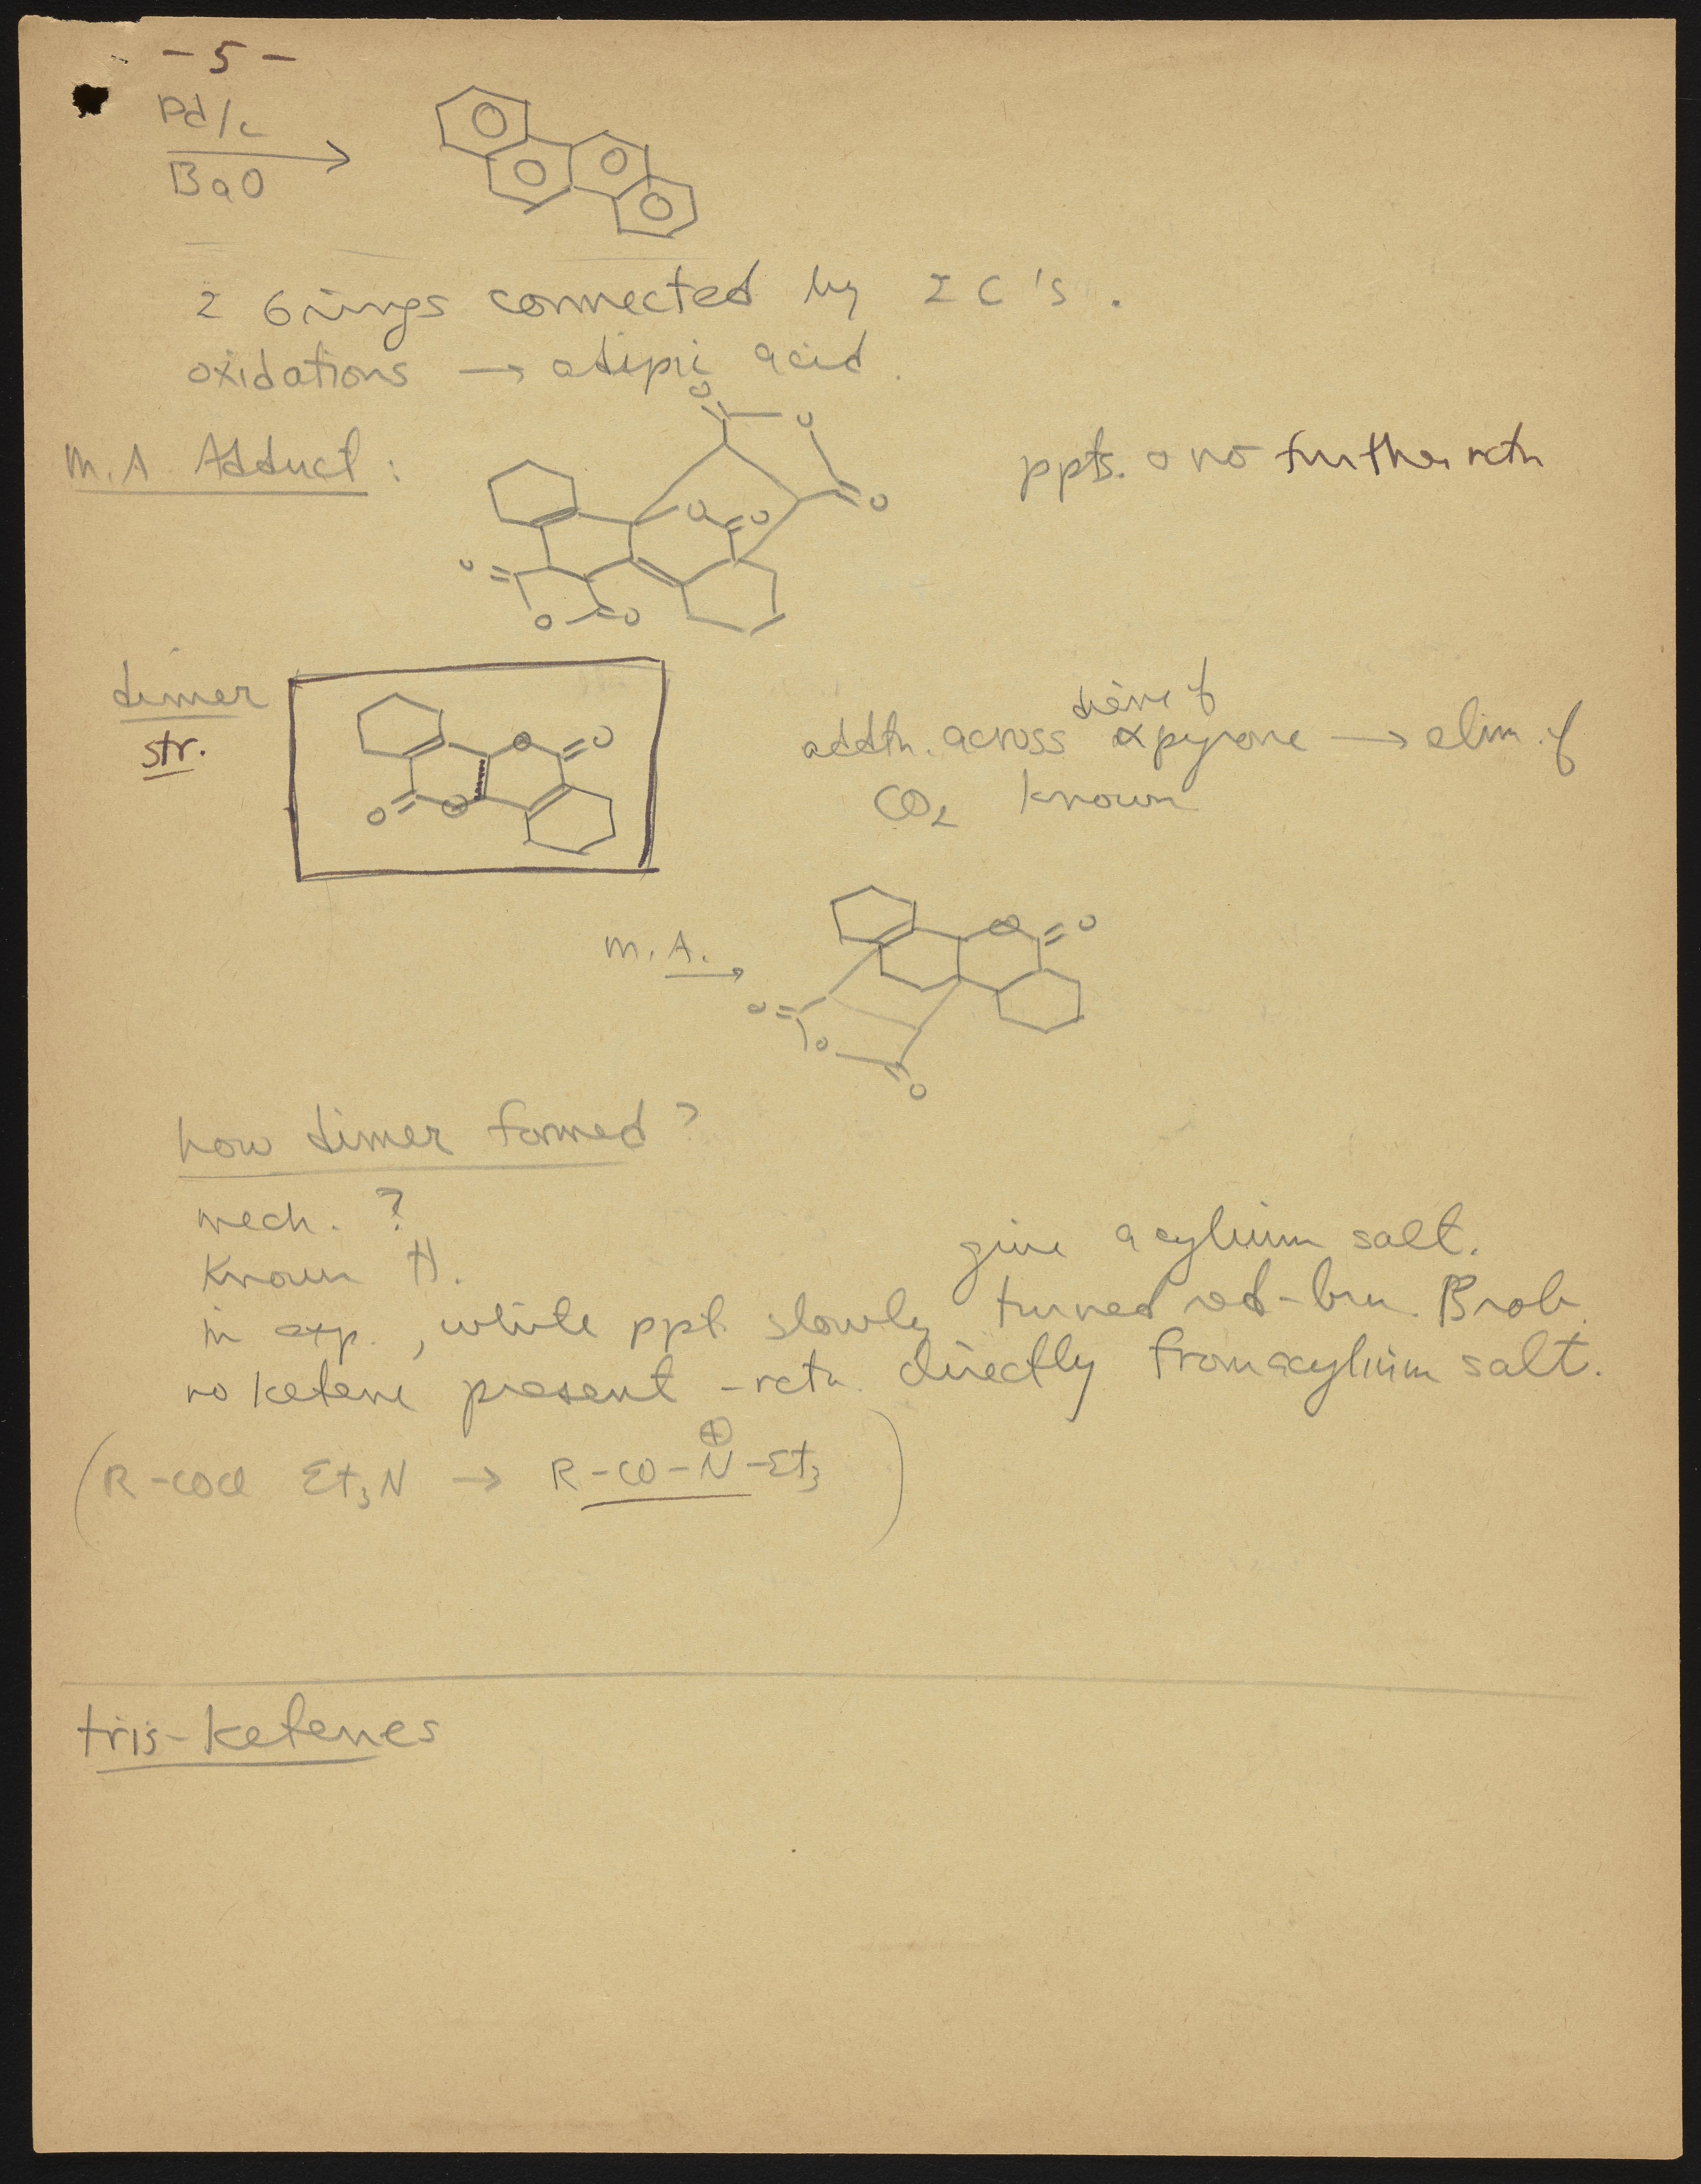 - 5 -
Pd/c
BaO
2 6 rings connected by 2 C's.
oxidations → adipic acid.
M.A Adduct:
ppts. no further rctn
O
O
O
O
O
O
O
O
dimer
str.
O
O
O
O
addtn. across diene of α pyrone → elim. of
CO2 known
M.A.
O
O
O
O
O
how dimer formed?
mech. ?
Known
give acylium salt.
in exp., white ppt. slowly turned red-brn. Prob.
no ketene present - rctn. directly from acylium salt.
(R-COCl Et3N → R-CO-N⊕-Et3)
tris-ketenes